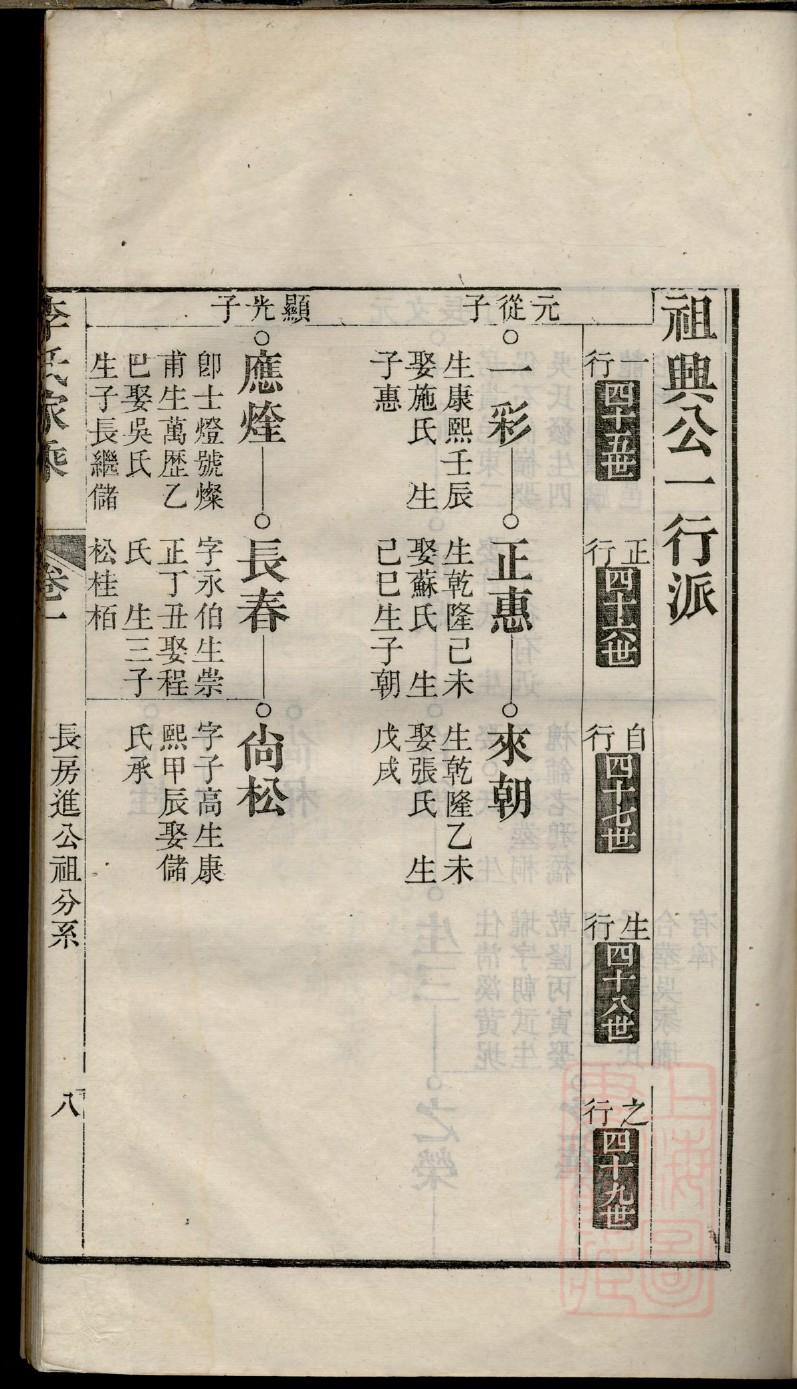 祖興公一行派
一行 四十五世
正行 四十六世
自行 四十七世
生行 四十八世
之行 四十九世
元從子
一彩
生康熙壬辰
娶施氏　生
子惠
正惠
生乾隆己未
娶蘇氏　生
己巳生子朝
來朝
生乾隆乙未
娶張氏　生
戊戌
顯光子
應煃
卽士燈號燦
甫生萬歷乙
巳娶吳氏
生子長繼儲
長春
字永伯生崇
正丁丑娶程
氏　生三子
松桂栢
尙松
字子高生康
熙甲辰娶儲
氏承
李氏家乘
卷一
長房進公祖分系
八